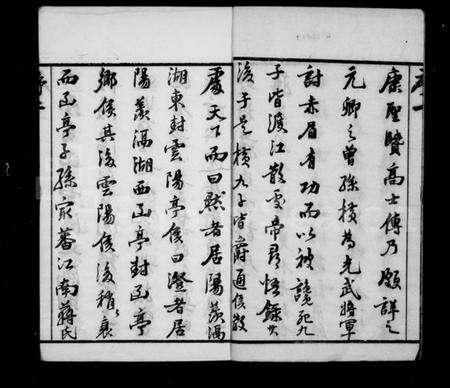 康聖賢高士傳乃頗詳之
元卿之曾孫橫為光武將軍
討赤眉有功而以被讒死九
子皆渡江散處帝尋悟錄其
後于是橫九子皆爵通侯散
處天下而曰默者居陽羨滆
湖東封雲陽亭侯曰澄者居
陽羨滆湖西𠙖亭封𠙖亭
鄉侯其後雲陽侯後稍〻衰
而𠙖亭子孫㝡蕃江南蔣氏